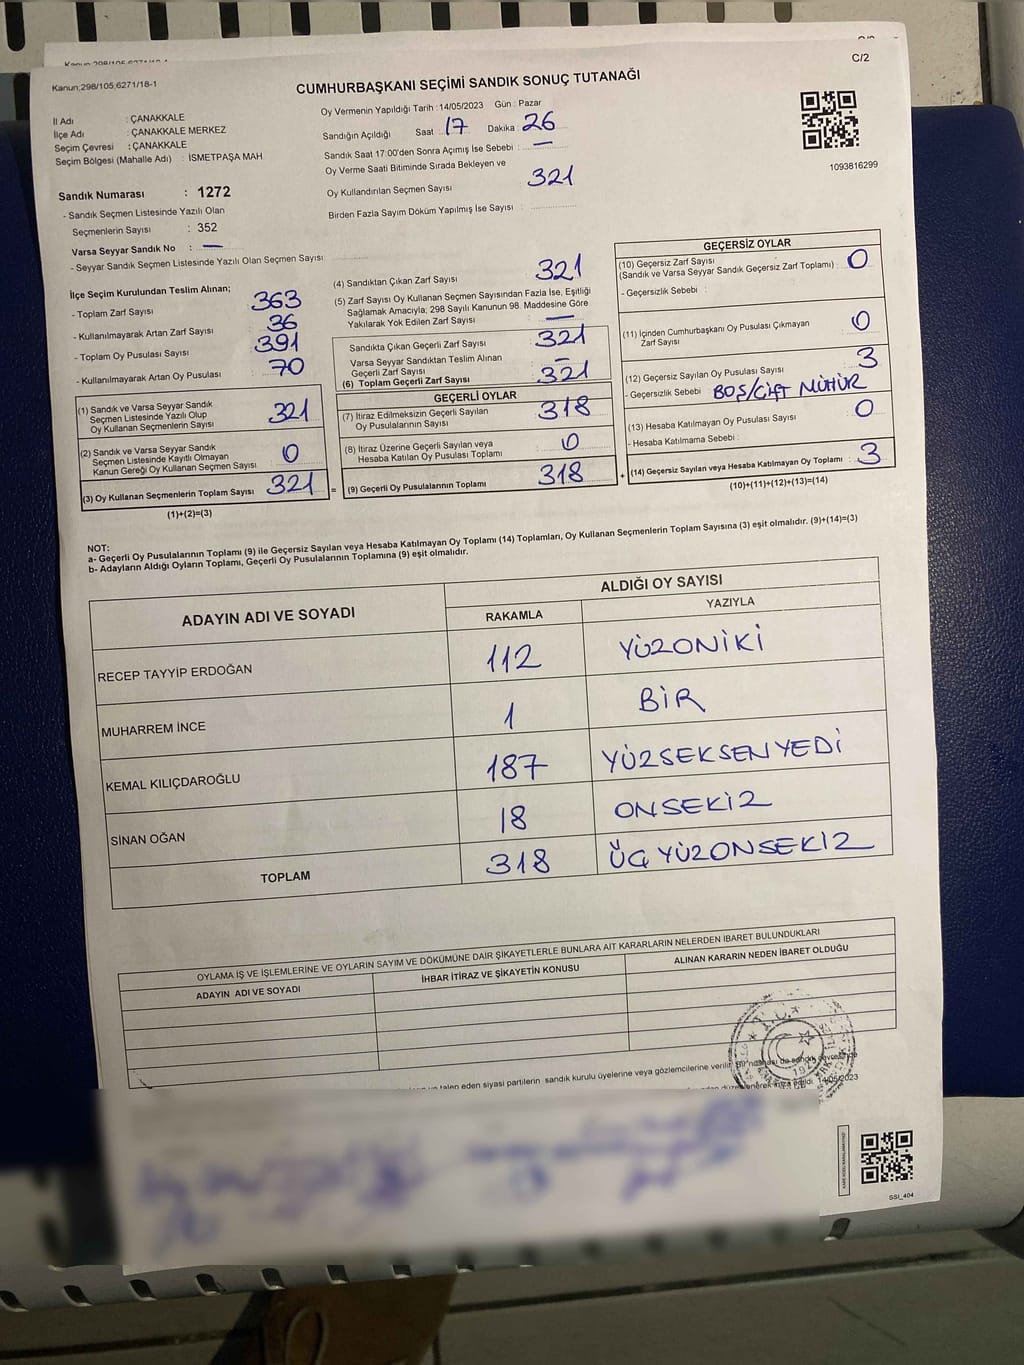 C/2
Kanun;298/105;6271/18-1
CUMHURBAŞKANI SEÇİMİ SANDIK SONUÇ TUTANAĞI
İl Adı : ÇANAKKALE
İlçe Adı : ÇANAKKALE MERKEZ
Seçim Çevresi : ÇANAKKALE
Seçim Bölgesi (Mahalle Adı) : İSMETPAŞA MAH
Oy Vermenin Yapıldığı Tarih : 14/05/2023 Gün : Pazar
Sandığın Açıldığı Saat : 17 Dakika : 26
Sandık Saat 17:00'den Sonra Açımış İse Sebebi : —
Oy Verme Saati Bitiminde Sırada Bekleyen ve
Oy Kullandırılan Seçmen Sayısı 321
Birden Fazla Sayım Döküm Yapılmış İse Sayısı :
1093816299
Sandık Numarası : 1272
- Sandık Seçmen Listesinde Yazılı Olan
Seçmenlerin Sayısı : 352
Varsa Seyyar Sandık No : —
- Seyyar Sandık Seçmen Listesinde Yazılı Olan Seçmen Sayısı :
İlçe Seçim Kurulundan Teslim Alınan;
- Toplam Zarf Sayısı 363
- Kullanılmayarak Artan Zarf Sayısı 36
- Toplam Oy Pusulası Sayısı 391
- Kullanılmayarak Artan Oy Pusulası 70
(1) Sandık ve Varsa Seyyar Sandık
Seçmen Listesinde Yazılı Olup
Oy Kullanan Seçmenlerin Sayısı 321
(2) Sandık ve Varsa Seyyar Sandık
Seçmen Listesinde Kayıtlı Olmayan
Kanun Gereği Oy Kullanan Seçmen Sayısı 0
(3) Oy Kullanan Seçmenlerin Toplam Sayısı 321 =
(1)+(2)=(3)
(4) Sandıktan Çıkan Zarf Sayısı 321
(5) Zarf Sayısı Oy Kullanan Seçmen Sayısından Fazla İse, Eşitliği
Sağlamak Amacıyla; 298 Sayılı Kanunun 98. Maddesine Göre
Yakılarak Yok Edilen Zarf Sayısı : —
Sandıkta Çıkan Geçerli Zarf Sayısı 321
Varsa Seyyar Sandıktan Teslim Alınan
Geçerli Zarf Sayısı —
(6) Toplam Geçerli Zarf Sayısı 321
GEÇERLİ OYLAR
(7) İtiraz Edilmeksizin Geçerli Sayılan
Oy Pusulalarının Sayısı 318
(8) İtiraz Üzerine Geçerli Sayılan veya
Hesaba Katılan Oy Pusulası Toplamı 0
(9) Geçerli Oy Pusulalarının Toplamı 318 +
GEÇERSİZ OYLAR
(10) Geçersiz Zarf Sayısı
(Sandık ve Varsa Seyyar Sandık Geçersiz Zarf Toplamı) : 0
- Geçersizlik Sebebi :
(11) İçinden Cumhurbaşkanı Oy Pusulası Çıkmayan
Zarf Sayısı 0
(12) Geçersiz Sayılan Oy Pusulası Sayısı 3
- Geçersizlik Sebebi BOŞ/ÇİFT MÜHÜR
(13) Hesaba Katılmayan Oy Pusulası Sayısı 0
- Hesaba Katılmama Sebebi :
(14) Geçersiz Sayılan veya Hesaba Katılmayan Oy Toplamı : 3
(10)+(11)+(12)+(13)=(14)
NOT:
a- Geçerli Oy Pusulalarının Toplamı (9) ile Geçersiz Sayılan veya Hesaba Katılmayan Oy Toplamı (14) Toplamları, Oy Kullanan Seçmenlerin Toplam Sayısına (3) eşit olmalıdır. (9)+(14)=(3)
b- Adayların Aldığı Oyların Toplamı, Geçerli Oy Pusulalarının Toplamına (9) eşit olmalıdır.
ADAYIN ADI VE SOYADI
ALDIĞI OY SAYISI
RAKAMLA YAZIYLA
RECEP TAYYİP ERDOĞAN 112 YÜZONİKİ
MUHARREM İNCE 1 BİR
KEMAL KILIÇDAROĞLU 187 YÜZSEKSENYEDİ
SİNAN OĞAN 18 ONSEKİZ
TOPLAM 318 ÜÇYÜZONSEKİZ
OYLAMA İŞ VE İŞLEMLERİNE VE OYLARIN SAYIM VE DÖKÜMÜNE DAİR ŞİKAYETLERLE BUNLARA AİT KARARLARIN NELERDEN İBARET BULUNDUKLARI
ADAYIN ADI VE SOYADI İHBAR İTİRAZ VE ŞİKAYETİN KONUSU ALINAN KARARIN NEDEN İBARET OLDUĞU
talep eden siyasi partilerin sandık kurulu üyelerine veya gözlemcilerine
14/05/2023
T.C.
1923
SSI_404